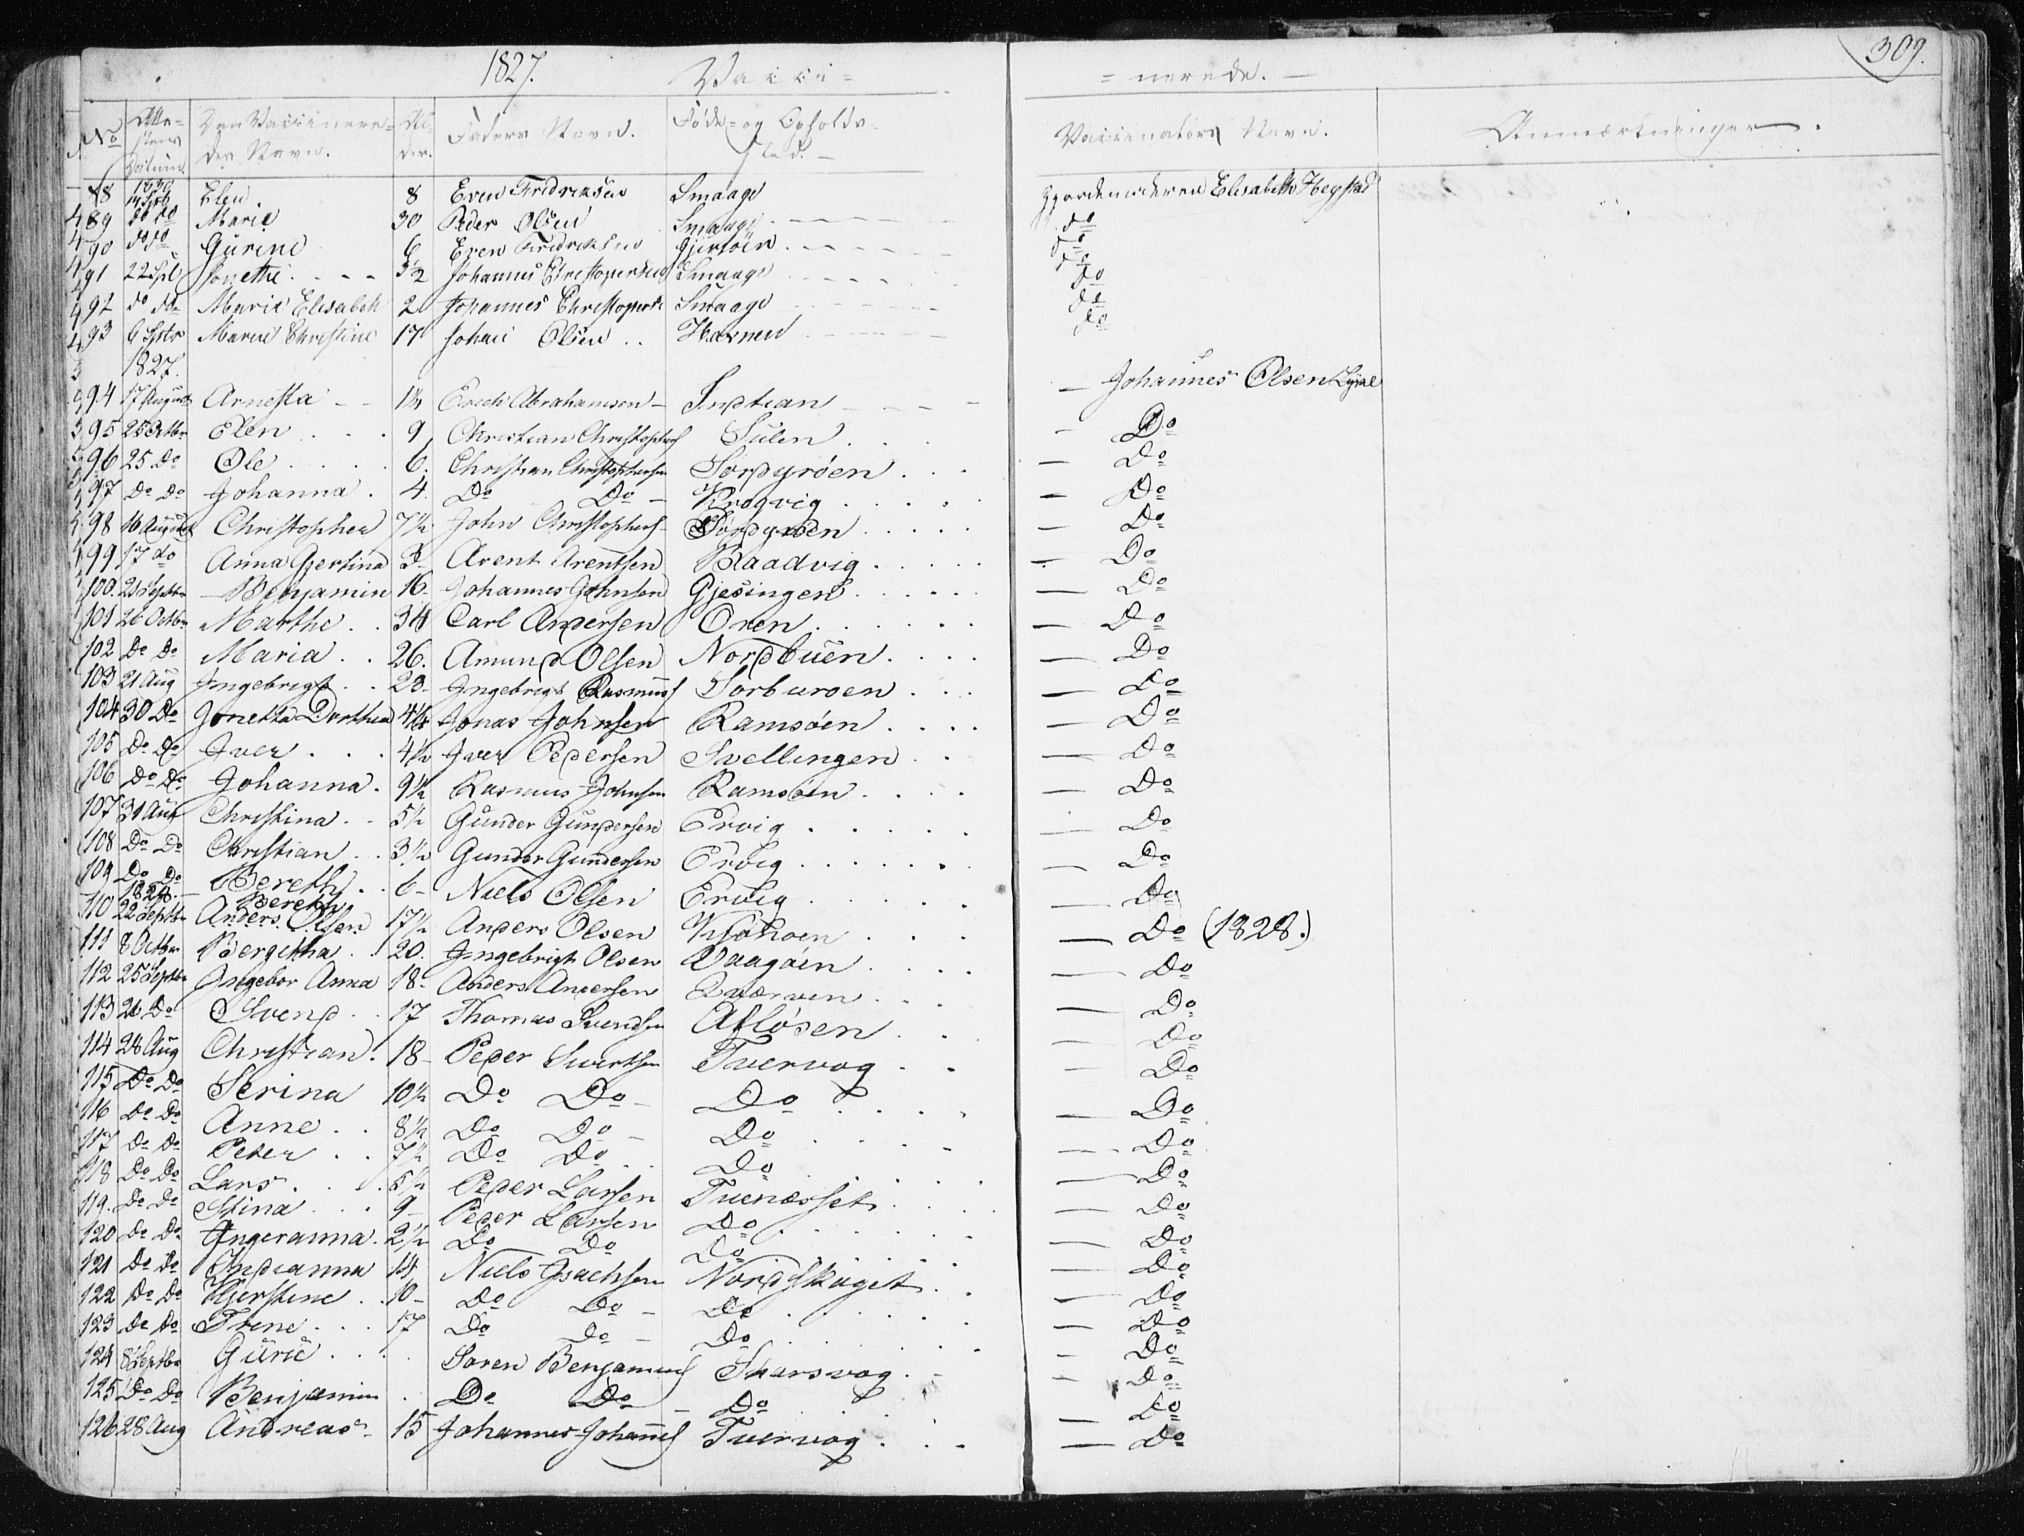 1827. Vacci= =nerede. — 309.
No Atte-stens Datum. Den Vaccinere-des Navn. Al-der. Faders Navn. Føde- og Opholds-sted. Vaccinators Navn. Anmærkninger.
88 1830 Elen. 8 Even Fridriksen Smaage Gjordemoderen Elisabeth Hegstad
89 do do Marie 30 Peder Olsen Smaage do
90 do do Gurine 6 Even Fridriksen Gjertöen do
91 22 Spt Jonethe 3½ Johannes Christopersen Smaage do
92 do do Marie Elisabeth 2 Johannes Christopers Smaage do
93 6 Sptr Maren Christine 17 Johan Olsen Havnen do
1827.
94 17 August Arnetta Erich Abrahamsen Indtian — Johannes Olsen
95 25 Octbr Elen 9 Christian Christophers Sulen — Do
96 25 Do Ole 6. Christian Christophersen Sordyröen — Do
97 Do Do Johanna 4. Do Do Krogvig — Do
98 16 August Christopher 7½ John Christophers Sordyröen — Do
99 17 do Anna Gjertina 3 Arent Arentsen Raadvig — Do
100. 21 Septbr Benjamin 16. Johannes Johnsen Gjesingen — Do
101 26 Octbr Marthe Carl Andersen Oren — Do
102 Do Do Maria 26. Amund Olsen Nordbuen — Do
103 21 Aug Ingebrigt 23. Ingebrigt Rasmuss Sorburoen — Do
104 30 Do Jonetta Dorthea 4½ Jonas Johnsen Ramsöen — Do
105 Do Do Iver 4½ Iver Pedersen Svellingen — Do
106 Do Do Johanna 9½ Rasmus Johnsen Ramsöen — Do
107 31 Aug Christina 5½ Gunder Gundersen Ervig — Do
108 Do Do Christian 3½ Gunder Gundersen Ervig — Do
109 Do Do Bereth 6 Niels Olsen Ervig — Do
1828. Bereth
110 22 Septbr Anders Olsen 17½ Anders Olsen — Do (1828.)
111 8 Octbr Bergitha 20. Ingebrigt Olsen Vaagöen — Do
112 25 Septbr Ingebor Anna 18 Anders Andersen Qværven — Do
113 26 Do Svend 17 Thomas Svendsen Aflösen — Do
114 28 Aug Christian 18 Peder Sivertsen Tvervog — Do
115 Do Do Serina 10½ Do Do Do — Do
116 Do Do Anne 8½ Do Do Do — Do
117 Do Do Peder 7½ Do Do Do — Do
118 Do Do Lars 5½ Peder Larsen Tuenesset — Do
119. Do Do Stina 9 Peder Larsen Do — Do
120 Do Do Ingeranna 2½ Do Do Do — Do
121 Do Do Indianna 14 Niels Isachsen Nordskaget — Do
122 Do Do Kjerstine 10 Do Do Do — Do
123 Do Do Trine 17 Do Do Do — Do
124 8 Septbr Gurie Soren Benjamins Skarsvog — Do
125 Do Do Benjamin Do Do Do — Do
126 28 Aug Andreas 15 Johannes Johans Tvervog — Do